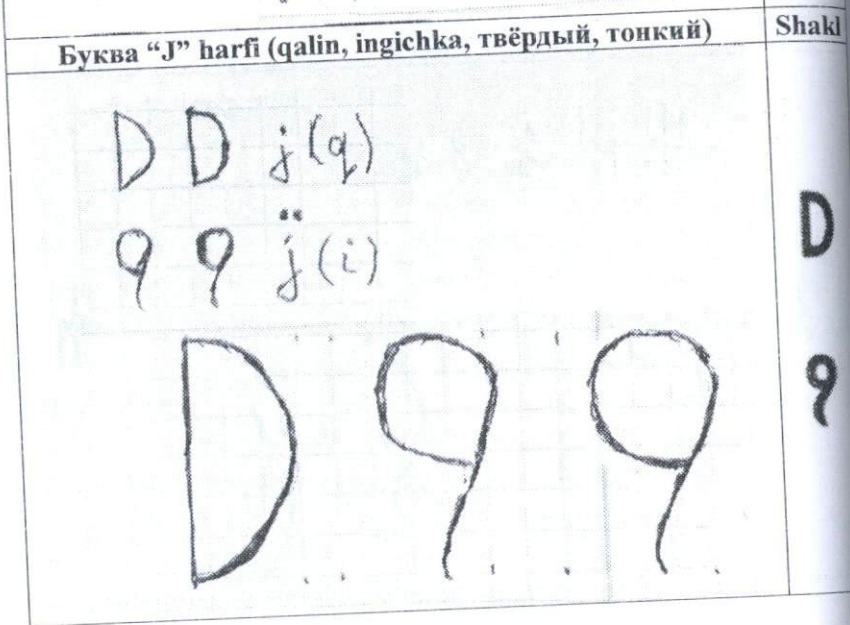 Буква “J” harfi (qalin, ingichka, твёрдый, тонкий)
Shakl
D D j(q)
9 9 j̈(i)
D 9 9
D
9